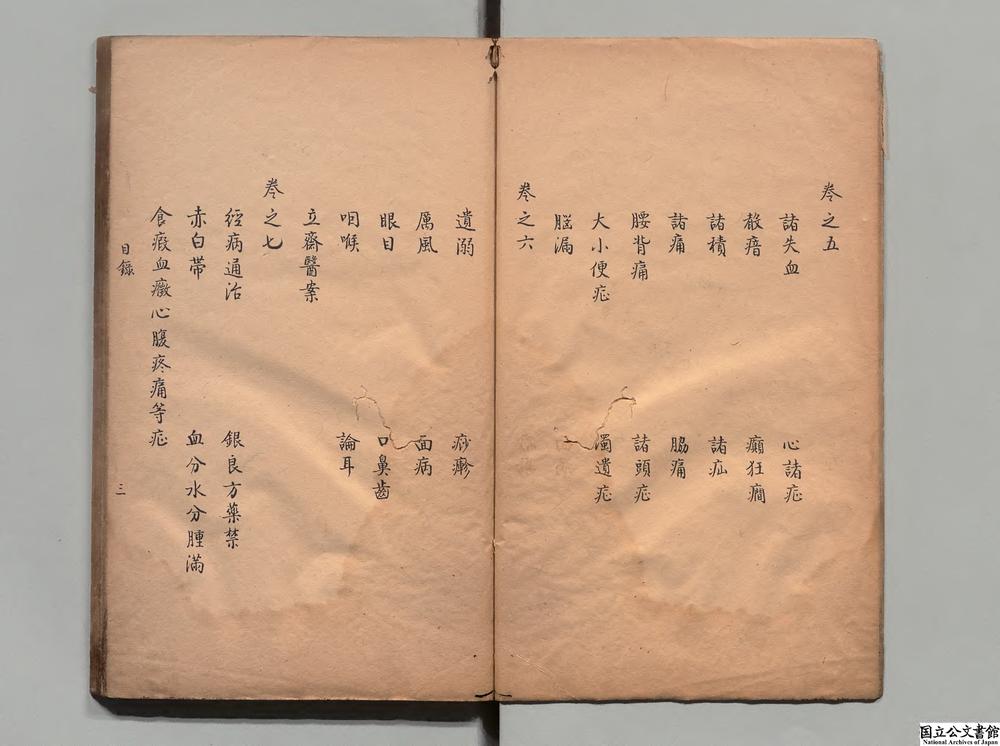 卷之五
諸失血　心諸症
殽瘖　癲狂癇
諸積　諸疝
諸痛　脇痛
腰背痛　諸頭症
大小便症　濁遺症
腦漏
卷之六
遺溺　痧瘮
厲風　面病
眼目　口鼻齒
咽喉　論耳
立齋醫案
卷之七
經病通治　銀良方藥禁
赤白帶　血分水分腫滿
食瘕血癥心腹疼痛等症
目錄　三
国立公文書館
National Archives of Japan